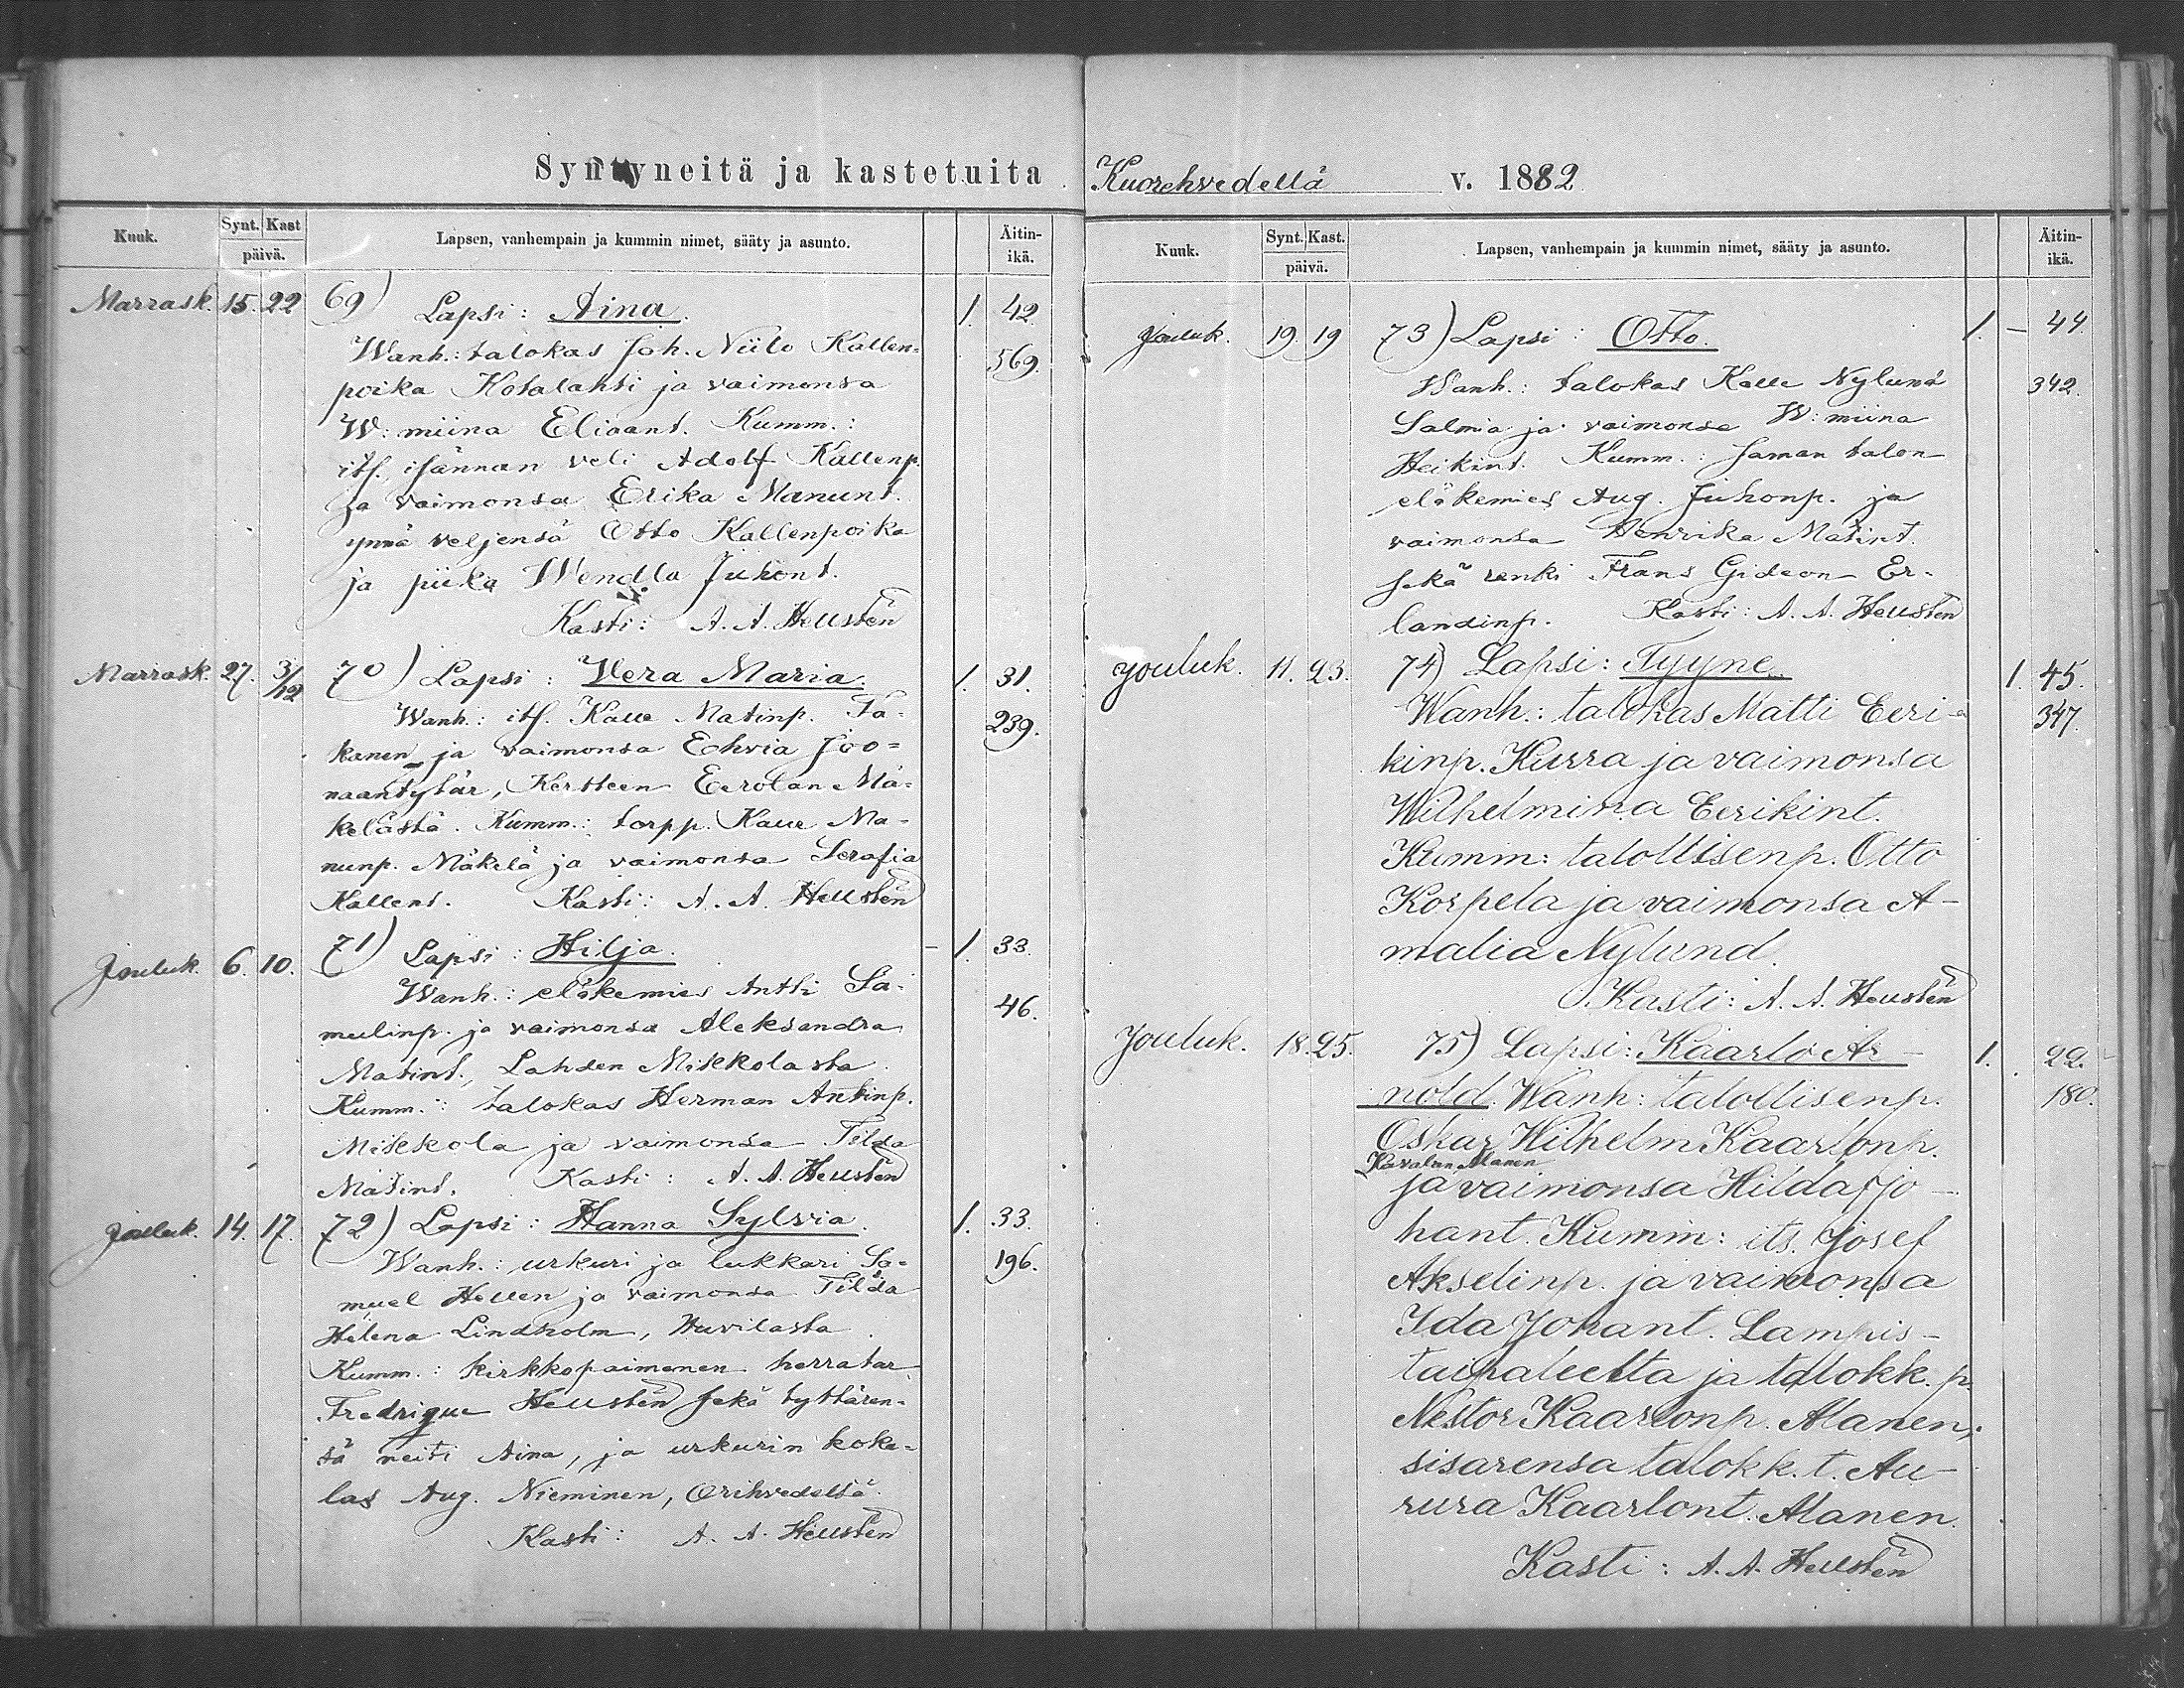 Syntyneitä ja kastetuita Kuorehvedellä v. 1882
Kuuk. Synt. Kast päivä. Lapsen, vanhempain ja kummin nimet, sääty ja asunto. Äitin-ikä.
Marrask. 15. 22 69) Lapsi: Aina. 1. 42
Wanh.: talokas Joh. Niilo Kallen= 569.
poika Hotalahti ja vaimonsa
W:miina Eliaant. Kumm.:
its. isännän veli Adolf Kallenp.
ja vaimonsa Erika Manunt.
ynnä veljensä Otto Kallenpoika
ja piika Wendla Juhont.
Kasti: A. A. Hellstén
Marrask. 27. 3/12 70) Lapsi: Vera Maria. 1. 31.
Wanh.: its. Kalle Matinp. Ta- 239.
kanen ja vaimonsa Edvia Joo=
naantytär, Kertteen Eerolan Mä=
kelästä. Kumm.: torpp. Kalle Ma-
nunp. Mäkelä ja vaimonsa Serafia
Kallent. Kasti: A. A. Hellstén
Jouluk. 6. 10. 71) Lapsi: Hilja. - 1. 33.
Wanh.: eläkemies Antti Sa- 46.
mulinp. ja vaimonsa Aleksandra
Matint., Lahden Mikkolasta.
Kumm.: talokas Herman Antinp.
Mikkola ja vaimonsa Tilda
Matint. Kasti: A. A. Hellstén
Jouluk. 14. 17. 72) Lapsi: Hanna Sylvia. 1. 33.
Wanh.: urkuri ja lukkari Sa= 196.
muel Hellen ja vaimonsa Tilda
Helena Lindholm, Huvilasta.
Kumm.: kirkkopaimenen herratar
Fredrique Hellstén sekä tyttären-
sä neiti Aina, ja urkurin koke-
las Aug. Nieminen, Orihvedeltä.
Kasti: A. A. Hellstén
Kuuk. Synt. Kast. päivä. Lapsen, vanhempain ja kummin nimet, sääty ja asunto. Äitin-ikä.
Jouluk. 19. 19 73) Lapsi: Otto. 1. - 44
Wanh.: talokas Kalle Nylund 342.
Salmia ja vaimonsa W:miina
Heikint. Kumm.: saman talon
eläkemies Aug. Juhonp. ja
vaimonsa Henrika Matint.
sekä renki Frans Gideon Er-
landinp. Kasti: A. A. Hellstén
Jouluk. 11. 23. 74) Lapsi: Tyyne. 1. 45.
Wanh.: talokas Matti Eeri- 347.
kinp. Kurra ja vaimonsa
Wilhelmina Eerikint.
Kumm: talollisenp. Otto
Korpela ja vaimonsa A-
malia Nylund.
Kasti: A. A. Hellstén
Jouluk. 18. 25. 75) Lapsi: Kaarlo Ar- 1. 22.
nold. Wanh: talollisenp. 180.
Oskar Wilhelm Kaarlonp.
Alanen
ja vaimonsa Hilda Jo-
hant. Kumm: its. Josef
Akselinp. ja vaimonsa
Ida Johant. Lammis-
taipaleelta ja talokk. p.
Nestor Kaarlonp. Alanen,
sisarensa talokk. t. Au-
rura Kaarlont. Alanen.
Kasti: A. A. Hellstén